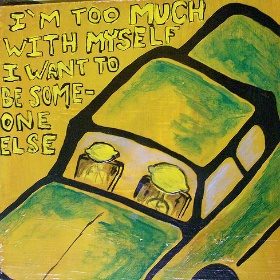 I'M TOO MUCH
WITH MYSELF
I WANT TO
BE SOME-
ONE
ELSE